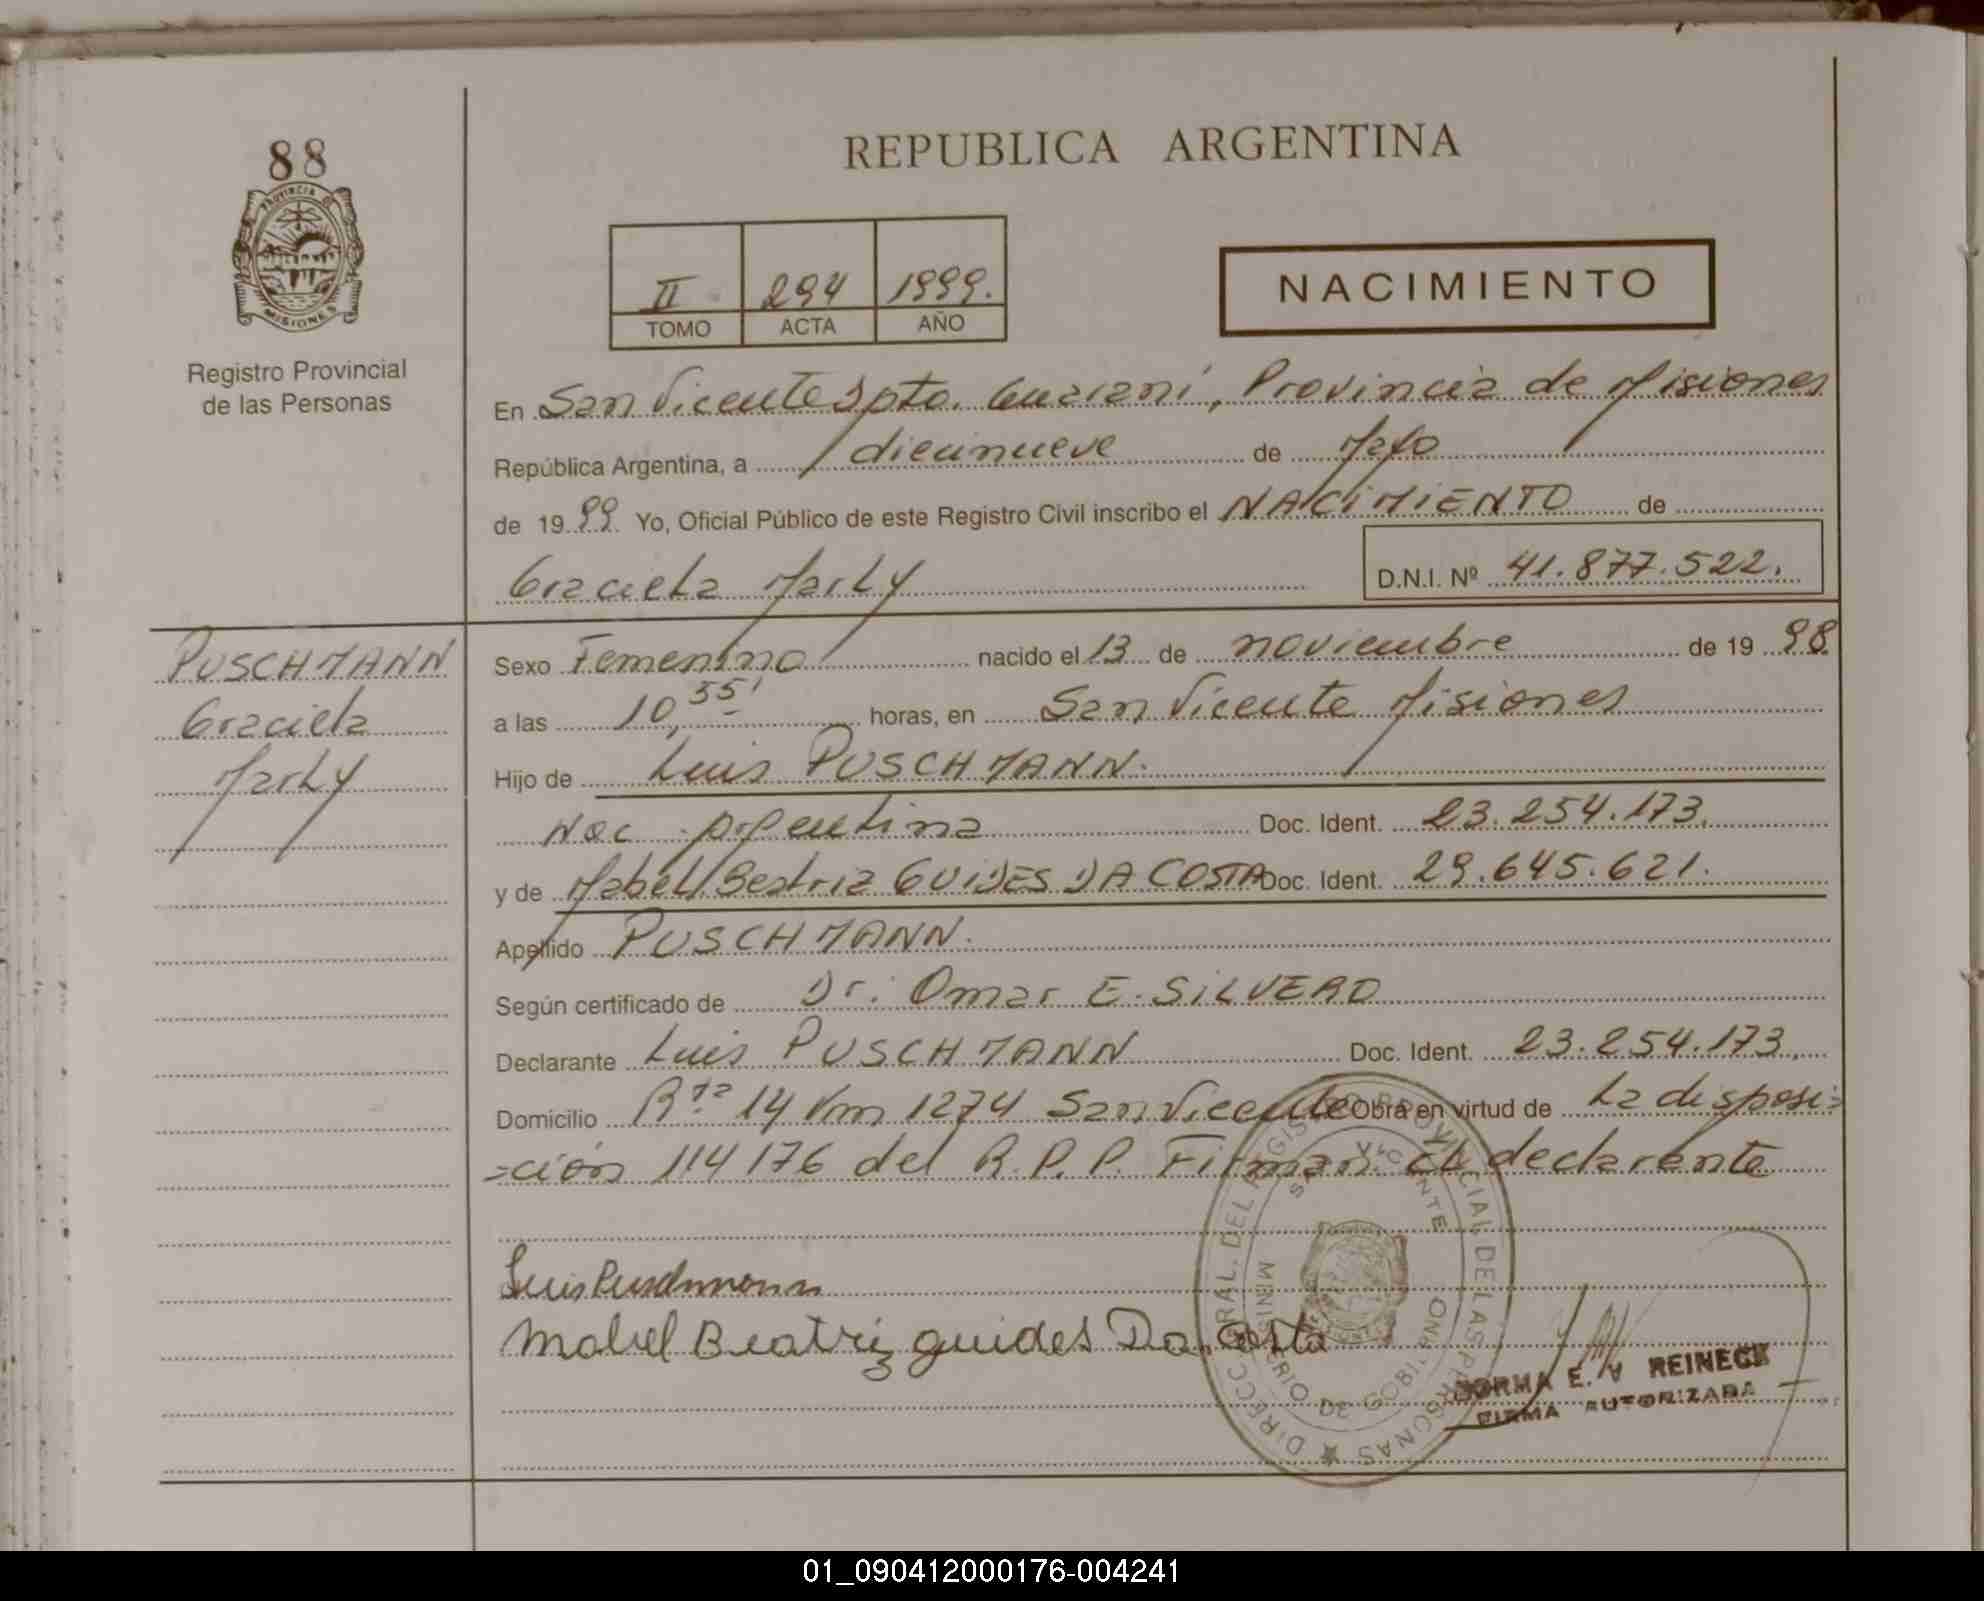 88
PROVINCIA DE
MISIONES
Registro Provincial
de las Personas
REPUBLICA ARGENTINA
II 294 1999.
TOMO ACTA AÑO
NACIMIENTO
En San Vicente Dpto. Guaraní, Provincia de Misiones
República Argentina, a diecinueve de Mayo
de 1999 Yo, Oficial Público de este Registro Civil inscribo el NACIMIENTO de
Graciela Marly D.N.I. Nº 41.877.522.
PUSCHMANN
Graciela
Marly
Sexo Femenino nacido el 13 de noviembre de 1998
a las 10,55' horas, en San Vicente Misiones
Hijo de Luis PUSCHMANN.
Nac. Argentina Doc. Ident. 23.254.173.
y de Mabel Beatriz GUIDES DA COSTA Doc. Ident. 29.645.621.
Apellido PUSCHMANN.
Según certificado de Dr. Omar E. SILVERO
Declarante Luis PUSCHMANN Doc. Ident. 23.254.173.
Domicilio Rta 14 Km 1274 San Vicente Obra en virtud de La disposi=
=ción 114176 del R.P.P. Firman el declarante
Luis Puschmann
Mabel Beatriz guides Da Costa
DIRECC. GRAL. DEL REGISTRO PROVINCIAL DE LAS PERSONAS
SAN VICENTE
MINISTERIO DE GOBIERNO
NORMA E. V REINECK
FIRMA AUTORIZADA
01_090412000176-004241